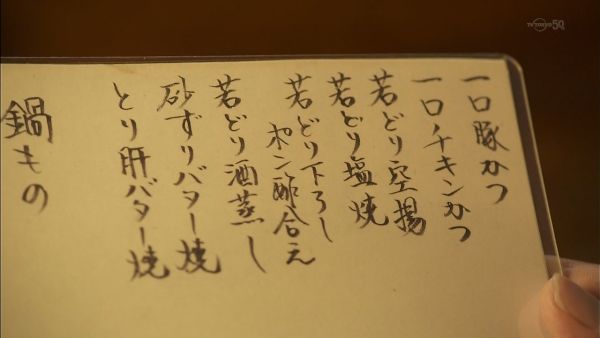 一口豚かつ
一口チキンかつ
若どり空揚
若どり塩焼
若どり下ろし
ポン酢合え
若どり酒蒸し
砂ずりバター焼
とり肝バター焼
鍋もの
TV TOKYO 50